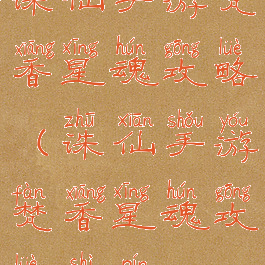 诛仙手游梵
xiāng xīng hún gōng lüè
香星魂攻略
zhū xiān shǒu yóu
（诛仙手游
fàn xiāng xīng hún gōng
梵香星魂攻
lüè shì pín